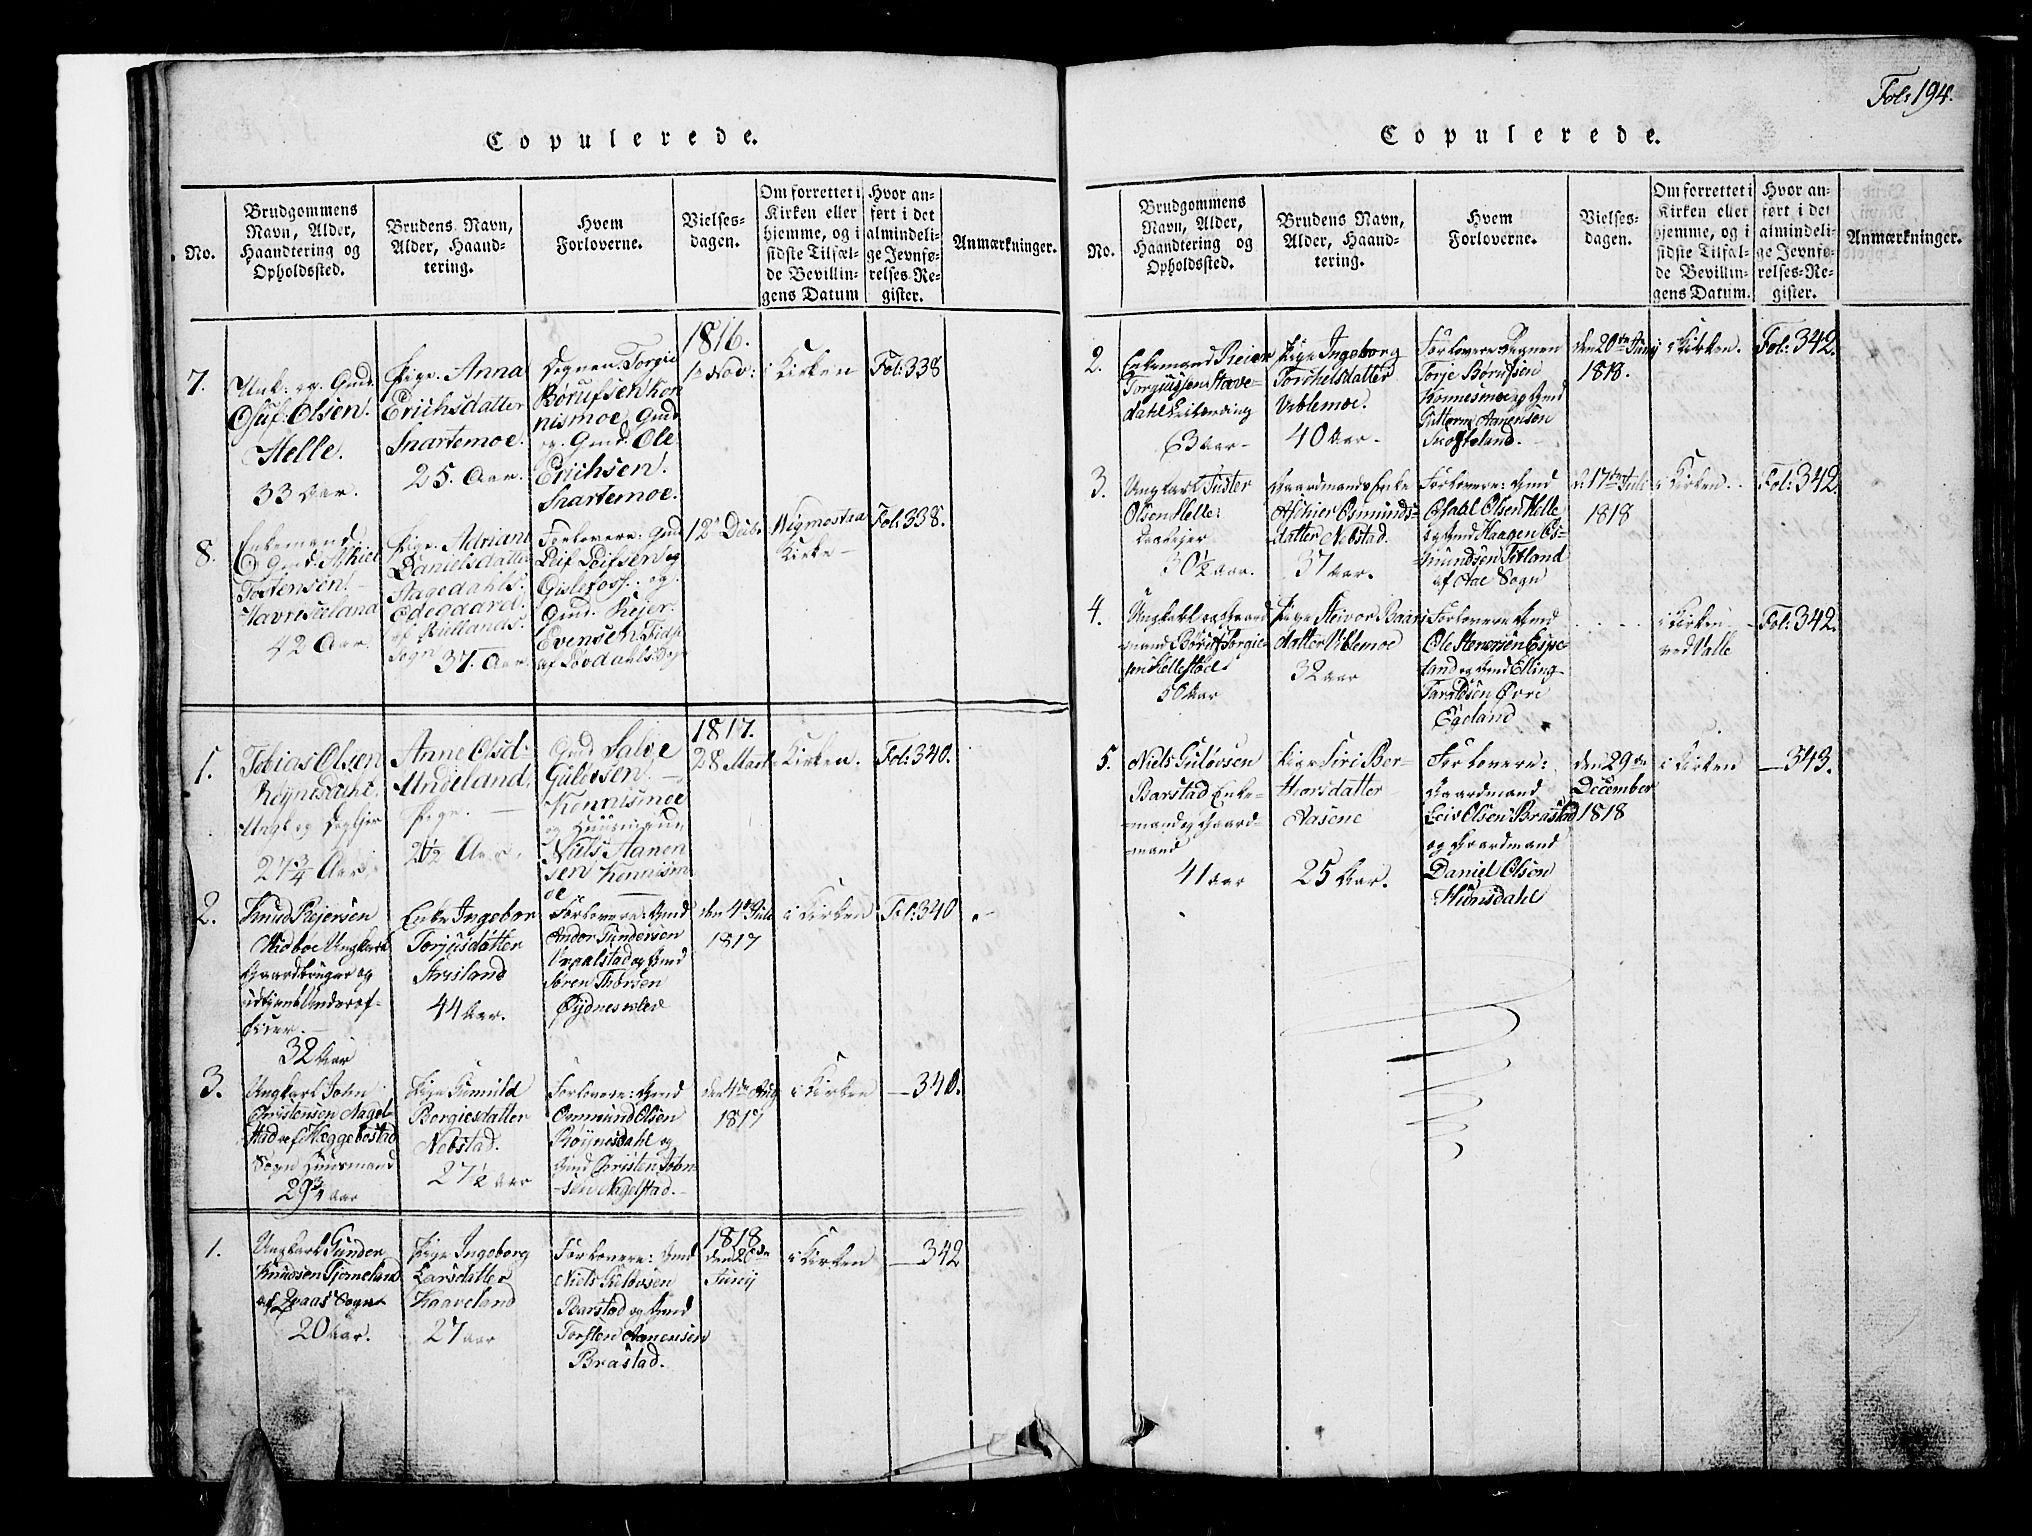 Fol: 194.
Copulerede.
No.
Brudgommens
Navn, Alder,
Haandtering og
Opholdssted.
Brudens Navn,
Alder, Haand-
tering.
Hvem
Forloverne.
Vielses-
dagen.
Om forrettet i
Kirken eller
hjemme, og i
sidste Tilfæl-
de Bevillin-
gens Datum
Hvor an-
ført i det
almindeli-
ge Jevnfø-
relses-Re-
gister.
Anmærkninger.
7.
Oluf Olsen
Helle.
33 Aar.
Pige. Anna
Erichsdatter
Snartemoe.
25. Aar.
Torgie
Børufsen Kon
nismoe, Gmd
og Gmd. Ole
Erichsen
Snartemoe.
1816.
1e Nov:
i Kirken
Fol: 338
8.
Enkemand
Tostensen
Havrisland
42 Aar.
Pige. Adriane
Danielsdatter
Aagedahls
Ødegaard
af Biellands
Sogn
37. Aar.
Forlovere: Gmd
Leif Leifsen og
Gislefoss. og
Gmd. Rejer
Evensen
af Løvdahls Sogn
12te Decbr
Wigmostad
Kirke
Fol: 338.
1.
Tobias Olsen
Røynesdahl
27 3/4 Aar
Anne Olsd.
Andeland,
Pige.
21 1/2 Aar.
Gmd Salve
Guldvsen
Konnismoe
og Huusmand
Niels Aanen
sen Konnism
oe
1817.
28 Mart
Kirken.
Fol: 340.
2.
Knud Rejersen
Midbøe Ungkarl
Gaardbruger og
udtient Underof-
ficer.
32 Aar
Enke Ingebor
Torjusdatter
44 Aar.
Forlovere: Gmd
Andor Gundersen
og Gmd
Søren Thorsen
Øydneskley
den 4de Juli
1817
i Kirken
Fol: 340
3.
Ungkarl John
Christensen Nagel-
stad af Heggebostad
Sogn Huusmand
29 3/4 aar
Pige Gunnild
Borgiesdatter
Nebstad.
27 1/2 aar
Forlovere: Gmd
Osmund Olsen
Røynesdahl og
Gmd Christen John
sen Nagelstad.
den 4de Aug
1817
i Kirken
— 340.
1.
Ungkarl Gunder
Knudsen Tjomeland
af Qvaas Sogn
20 Aar.
Pige Ingeborg
Larsdatter
Haaveland
27 aar
Forlovere: Gmd
Niels Guldvsen
Barstad og Gmd
Torsten Aanensen
Brastad.
1818
den 20de
Junij
i Kirken
— 342
Copulerede.
No.
Brudgommens
Navn, Alder,
Haandtering og
Opholdssted.
Brudens Navn,
Alder, Haand-
tering.
Hvem
Forloverne.
Vielses-
dagen.
Om forrettet i
Kirken eller
hjemme, og i
sidste Tilfæl-
de Bevillin-
gens Datum.
Hvor an-
ført i det
almindeli-
ge Jevnfø-
relses-Re-
gister.
Anmærkninger.
2.
Enkemand Reier
Torgiussen
63 Aar
Pige Ingeborg
Torchelsdatter
Viblemoe.
40 Aar.
Forlovere
Torje Børufsen
Konnesmoe og Gmd
Guttorm Aanensen
Skofteland.
den 20de Junij
1818.
i Kirken.
Fol: 342.
3.
Ungkarl Juster
Olsen Helle
30 1/2 aar.
Gaardmands Enke
Aschier Osmunds-
datter Nebstad.
37 Aar.
Forlovere: Gmd
Ofahl Olsen Helle
og Gmd Haagen Os-
mundsen Fitland
af Aae Sogn
d: 17de Juli
1818
i Kirken
Fol: 342.
4.
Ungkarl og Gaard
mand Børuf Torgie
sen Hellestøel
30 Aar
Pige Steivor Baars
datter Viblemoe
32 aar
Forlovere Gmd
Ole Stenersen Espe-
land og Gmd Elling
Taraldsen Øvre
Egeland
i Kirken
ved Valle
Fol: 342.
5.
Niels Guldvsen
Barstad Enke-
mand og Gaard-
mand
41 aar
Pige Siri Ber-
thorsdatter
Aasene
25 Aar.
Forlovere:
Gaardmand
Leiv Olsen Brastad
og Gaardmand
Daniel Olsen
Hunsdahl
den 29de
December
1818
i Kirken
— 343.